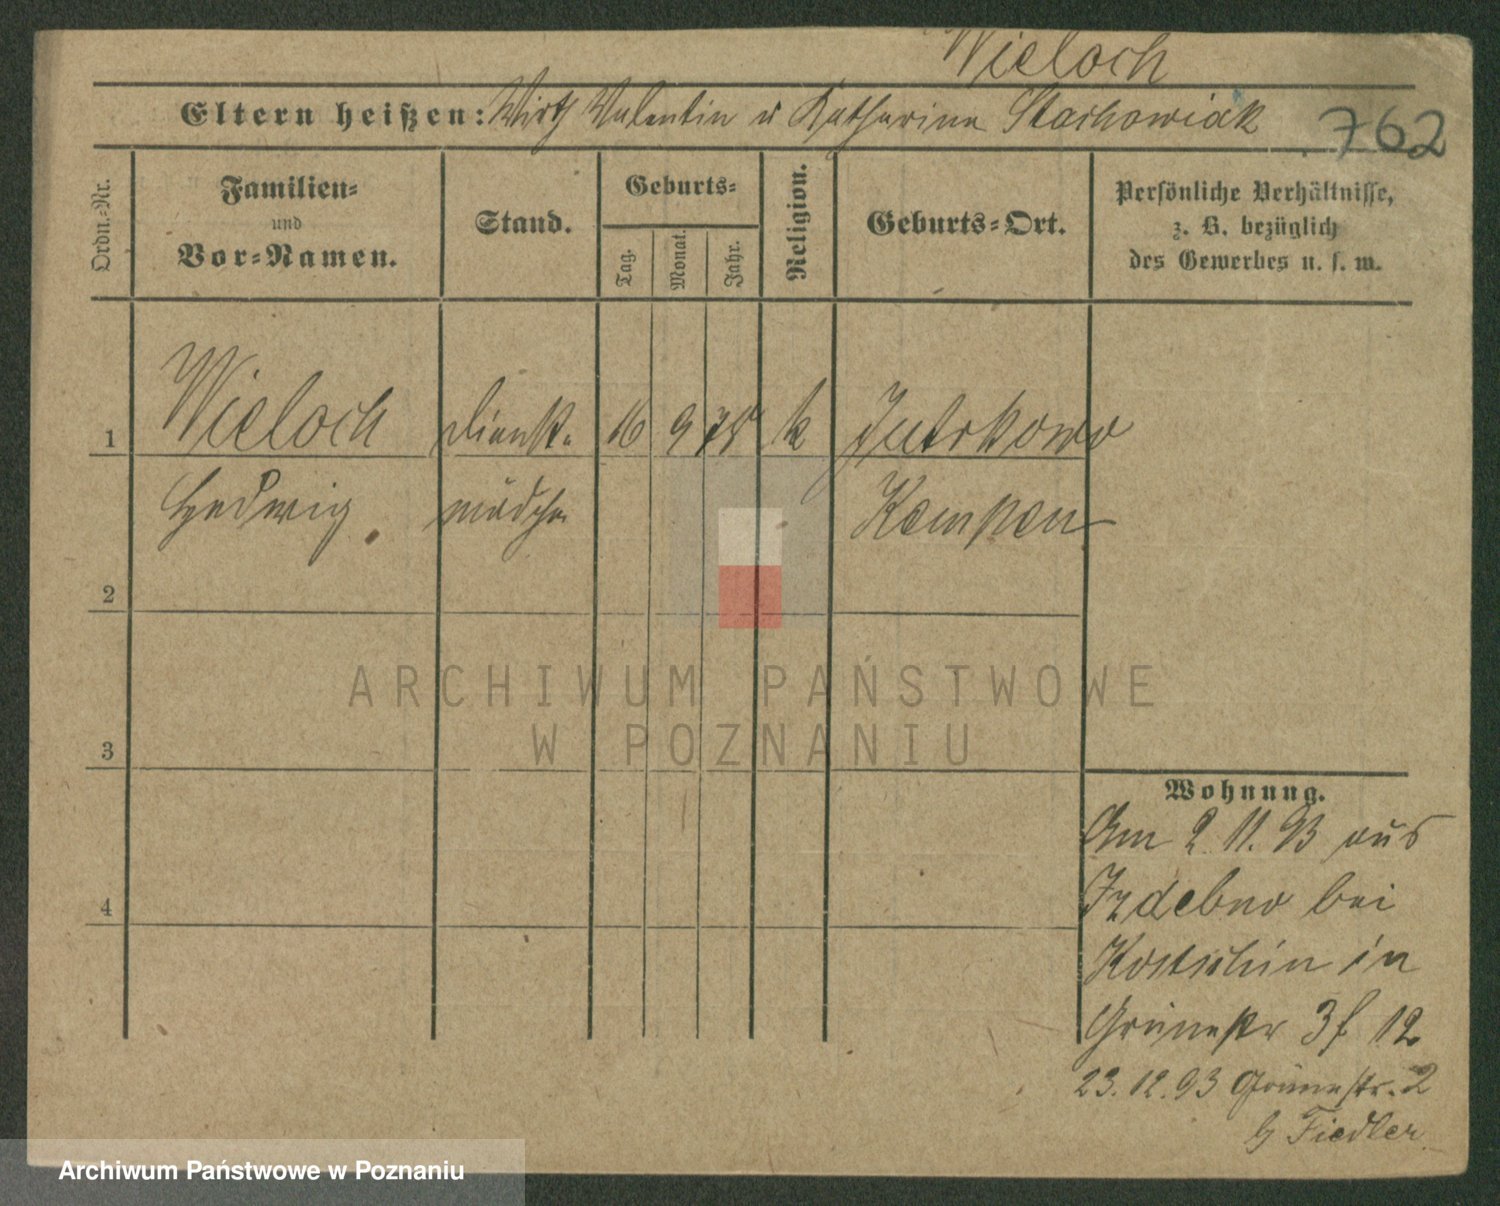 Wieloch
Eltern heißen: Wirth Valentin u Katharina Stachowiak 762
Ordn.-Nr.
Familien-
und
Vor-Namen.
Stand.
Geburts-
Tag.
Monat.
Jahr.
Religion.
Geburts-Ort.
Persönliche Verhältnisse,
z. B. bezüglich
des Gewerbes u. s. w.
1 Wieloch Dienst- 16 9 75 k
Hedwig mädchen Kempen
2
3
4
Wohnung.
Am 2. 11. 93 aus
Izdebno bei
Kostschin in
Grünestr 3 12
23.12.93 Grünestr. 2
b Fiedler
ARCHIWUM PAŃSTWOWE
W POZNANIU
Archiwum Państwowe w Poznaniu